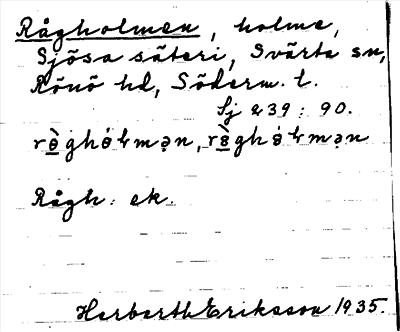 Rågholmen, holme,
Sjösa säteri, Svärta sn,
Rönö hd, Söderm. l.
Sj 239: 90.
rò̱ghó̱łmən, rò̱ghó̱łmən
Rågh: ek.
Herberth Eriksson 1935.